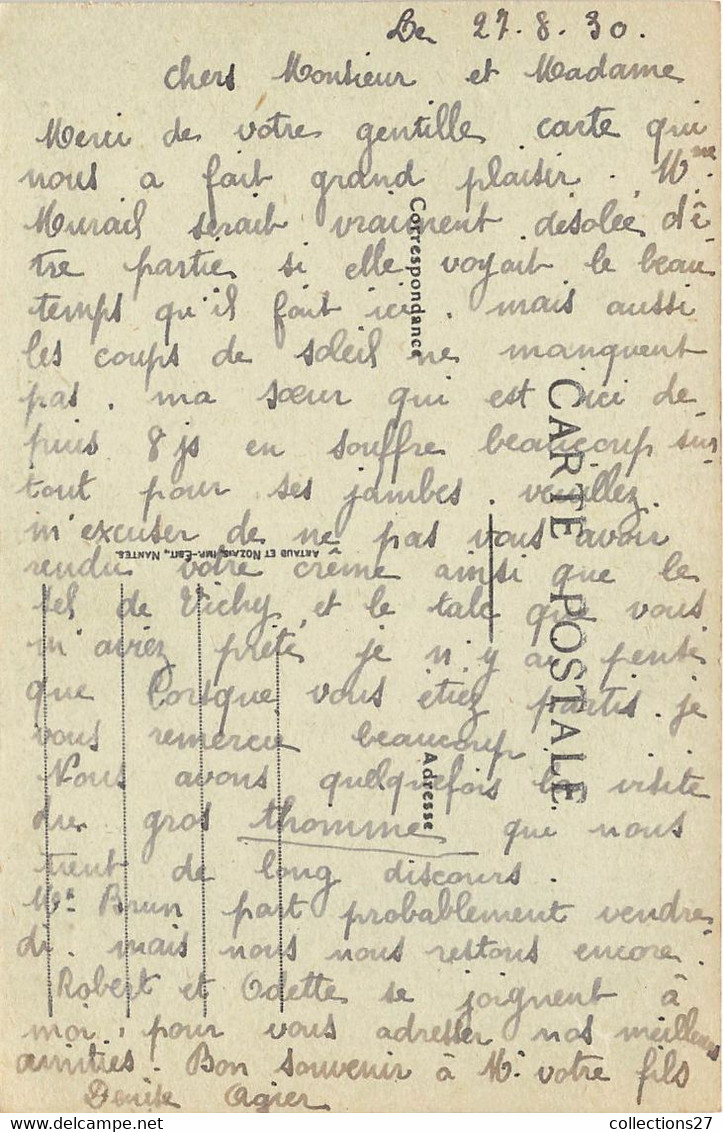 Le 27.8.30.
Chers Monsieur et Madame
Merci de votre gentille carte qui
nous a fait grand plaisir. Mme.
Murail serait vraiment désolée d'ê
tre partie si elle voyait le beau
temps qu'il fait ici. mais aussi
les coups de soleil ne manquent
pas. ma sœur qui est ici de
puis 8 js en souffre beaucoup sur
tout pour ses jambes. veuillez
m'excuser de ne pas vous avoir
rendu votre crême ainsi que le
sel de Vichy, et le talc que vous
m'aviez prêté, je n'y ai pensé
que lorsque vous étiez partis. je
vous remercie beaucoup
Nous avons quelquefois la visite
du gros thomme que nous
tient de long discours.
Mr. Brun part probablement vendre
di. mais nous nous restons encore.
Robert et Odette se joignent à
moi, pour vous adresser nos meilleures
amitiés. Bon souvenir à Mr. votre fils
Denise Agier
Correspondance
CARTE POSTALE
Adresse
ARTAUD ET NOZAIS, IMP.-ÉDIT., NANTES.
collections27